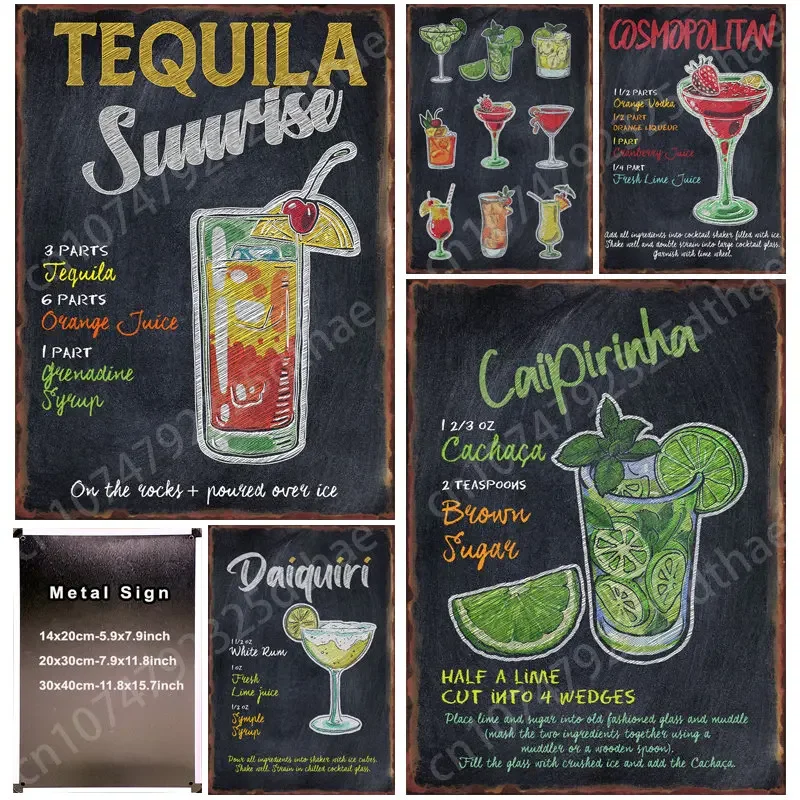 TEQUILA
Sunrise
3 PARTS
Tequila
6 PARTS
Orange Juice
1 PART
Grenadine
Syrup
On the rocks + poured over ice
COSMOPOLITAN
1 1/2 PARTS
Orange Vodka
1/2 PART
ORANGE LIQUEUR
1 PART
Cranberry Juice
1/4 PART
Fresh Lime Juice
Add all ingredients into cocktail shaker filled with ice.
Shake well and double strain into large cocktail glass.
Garnish with lime wheel.
Caipirinha
1 2/3 OZ
Cachaça
2 TEASPOONS
Brown
Sugar
HALF A LIME
CUT INTO 4 WEDGES
Place lime and sugar into old fashioned glass and muddle
(mash the two ingredients together using a
muddler or a wooden spoon).
Fill the glass with crushed ice and add the Cachaça.
Metal Sign
14x20cm-5.9x7.9inch
20x30cm-7.9x11.8inch
30x40cm-11.8x15.7inch
Daiquiri
1 1/2 OZ
White Rum
1 OZ
Fresh
Lime juice
1/2 OZ
Symple
Syrup
Pour all ingredients into shaker with ice cubes.
Shake well. Strain in chilled cocktail glass.
cn1074792325dthae